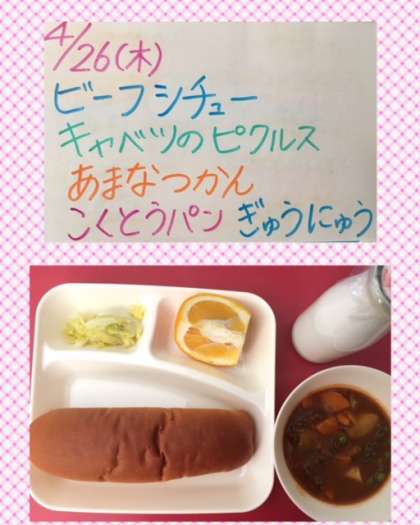 4/26(木)
ビーフシチュー
キャベツのピクルス
あまなつかん
こくとうパン ぎゅうにゅう